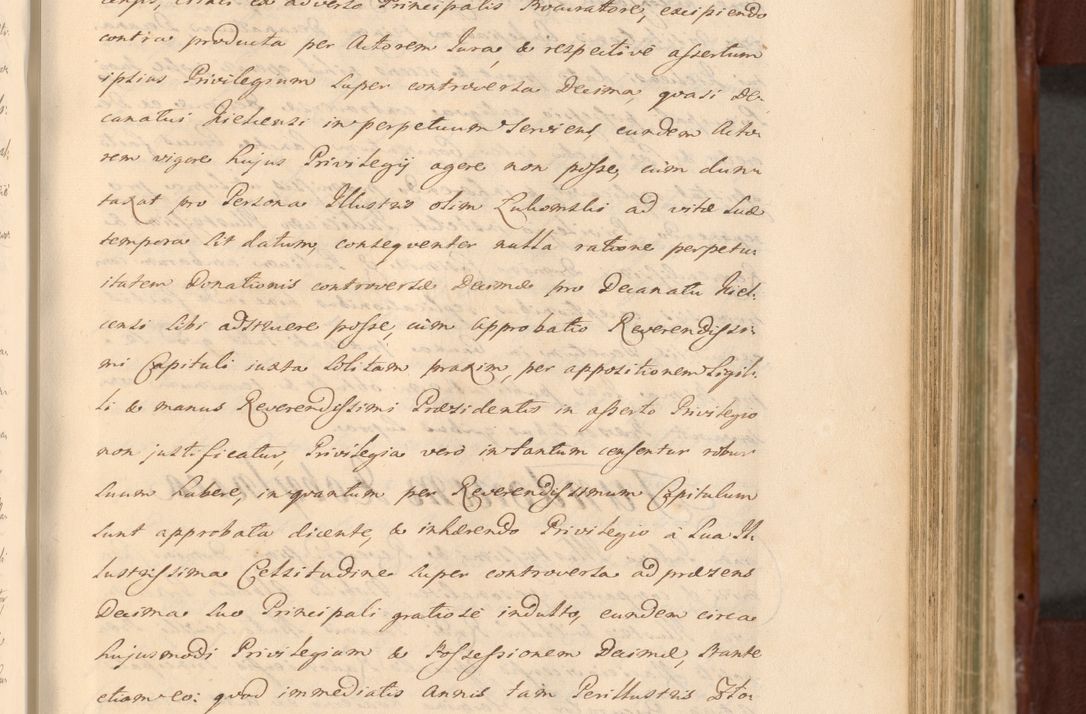 censis, Citici ex adverso Principalis Procuratore, excipiendo
contra producta per Actorem Jura, & respective assertum
ipsius Privilegium super controversa Decima, quasi De-
canatui Kielcensi in perpetuum serviens, eundem Acto-
rem vigore hujus Privilegij agere non posse, cum dun-
taxat pro Persona Illustris olim Lukomski ad vitæ suæ
tempora sit datum, consequenter nulla ratione perpetu-
itatem Donationis controversæ Decimæ pro Decanatu Kiel-
censi sibi adstruere posse, cum approbatio Reverendissi-
mi Capituli iuxta solitam praxim, per appositionem Sigil-
li & manus Reverendissimi Præsidentis in asserto Privilegio
non justificatur, Privilegia vero in tantum censentur robur
suum habere, in quantum per Reverendissimum Capitulum
sunt approbata dicente, & inhærendo Privilegio à Sua Il-
lustrissima Celsitudine super controversa ad præsens
Decima suo Principali gratiose indulto, eundem circa
hujusmodi Privilegium & Possessionem Decimæ, stante
etiam eo: quod immediatis Annis tam Perillustris